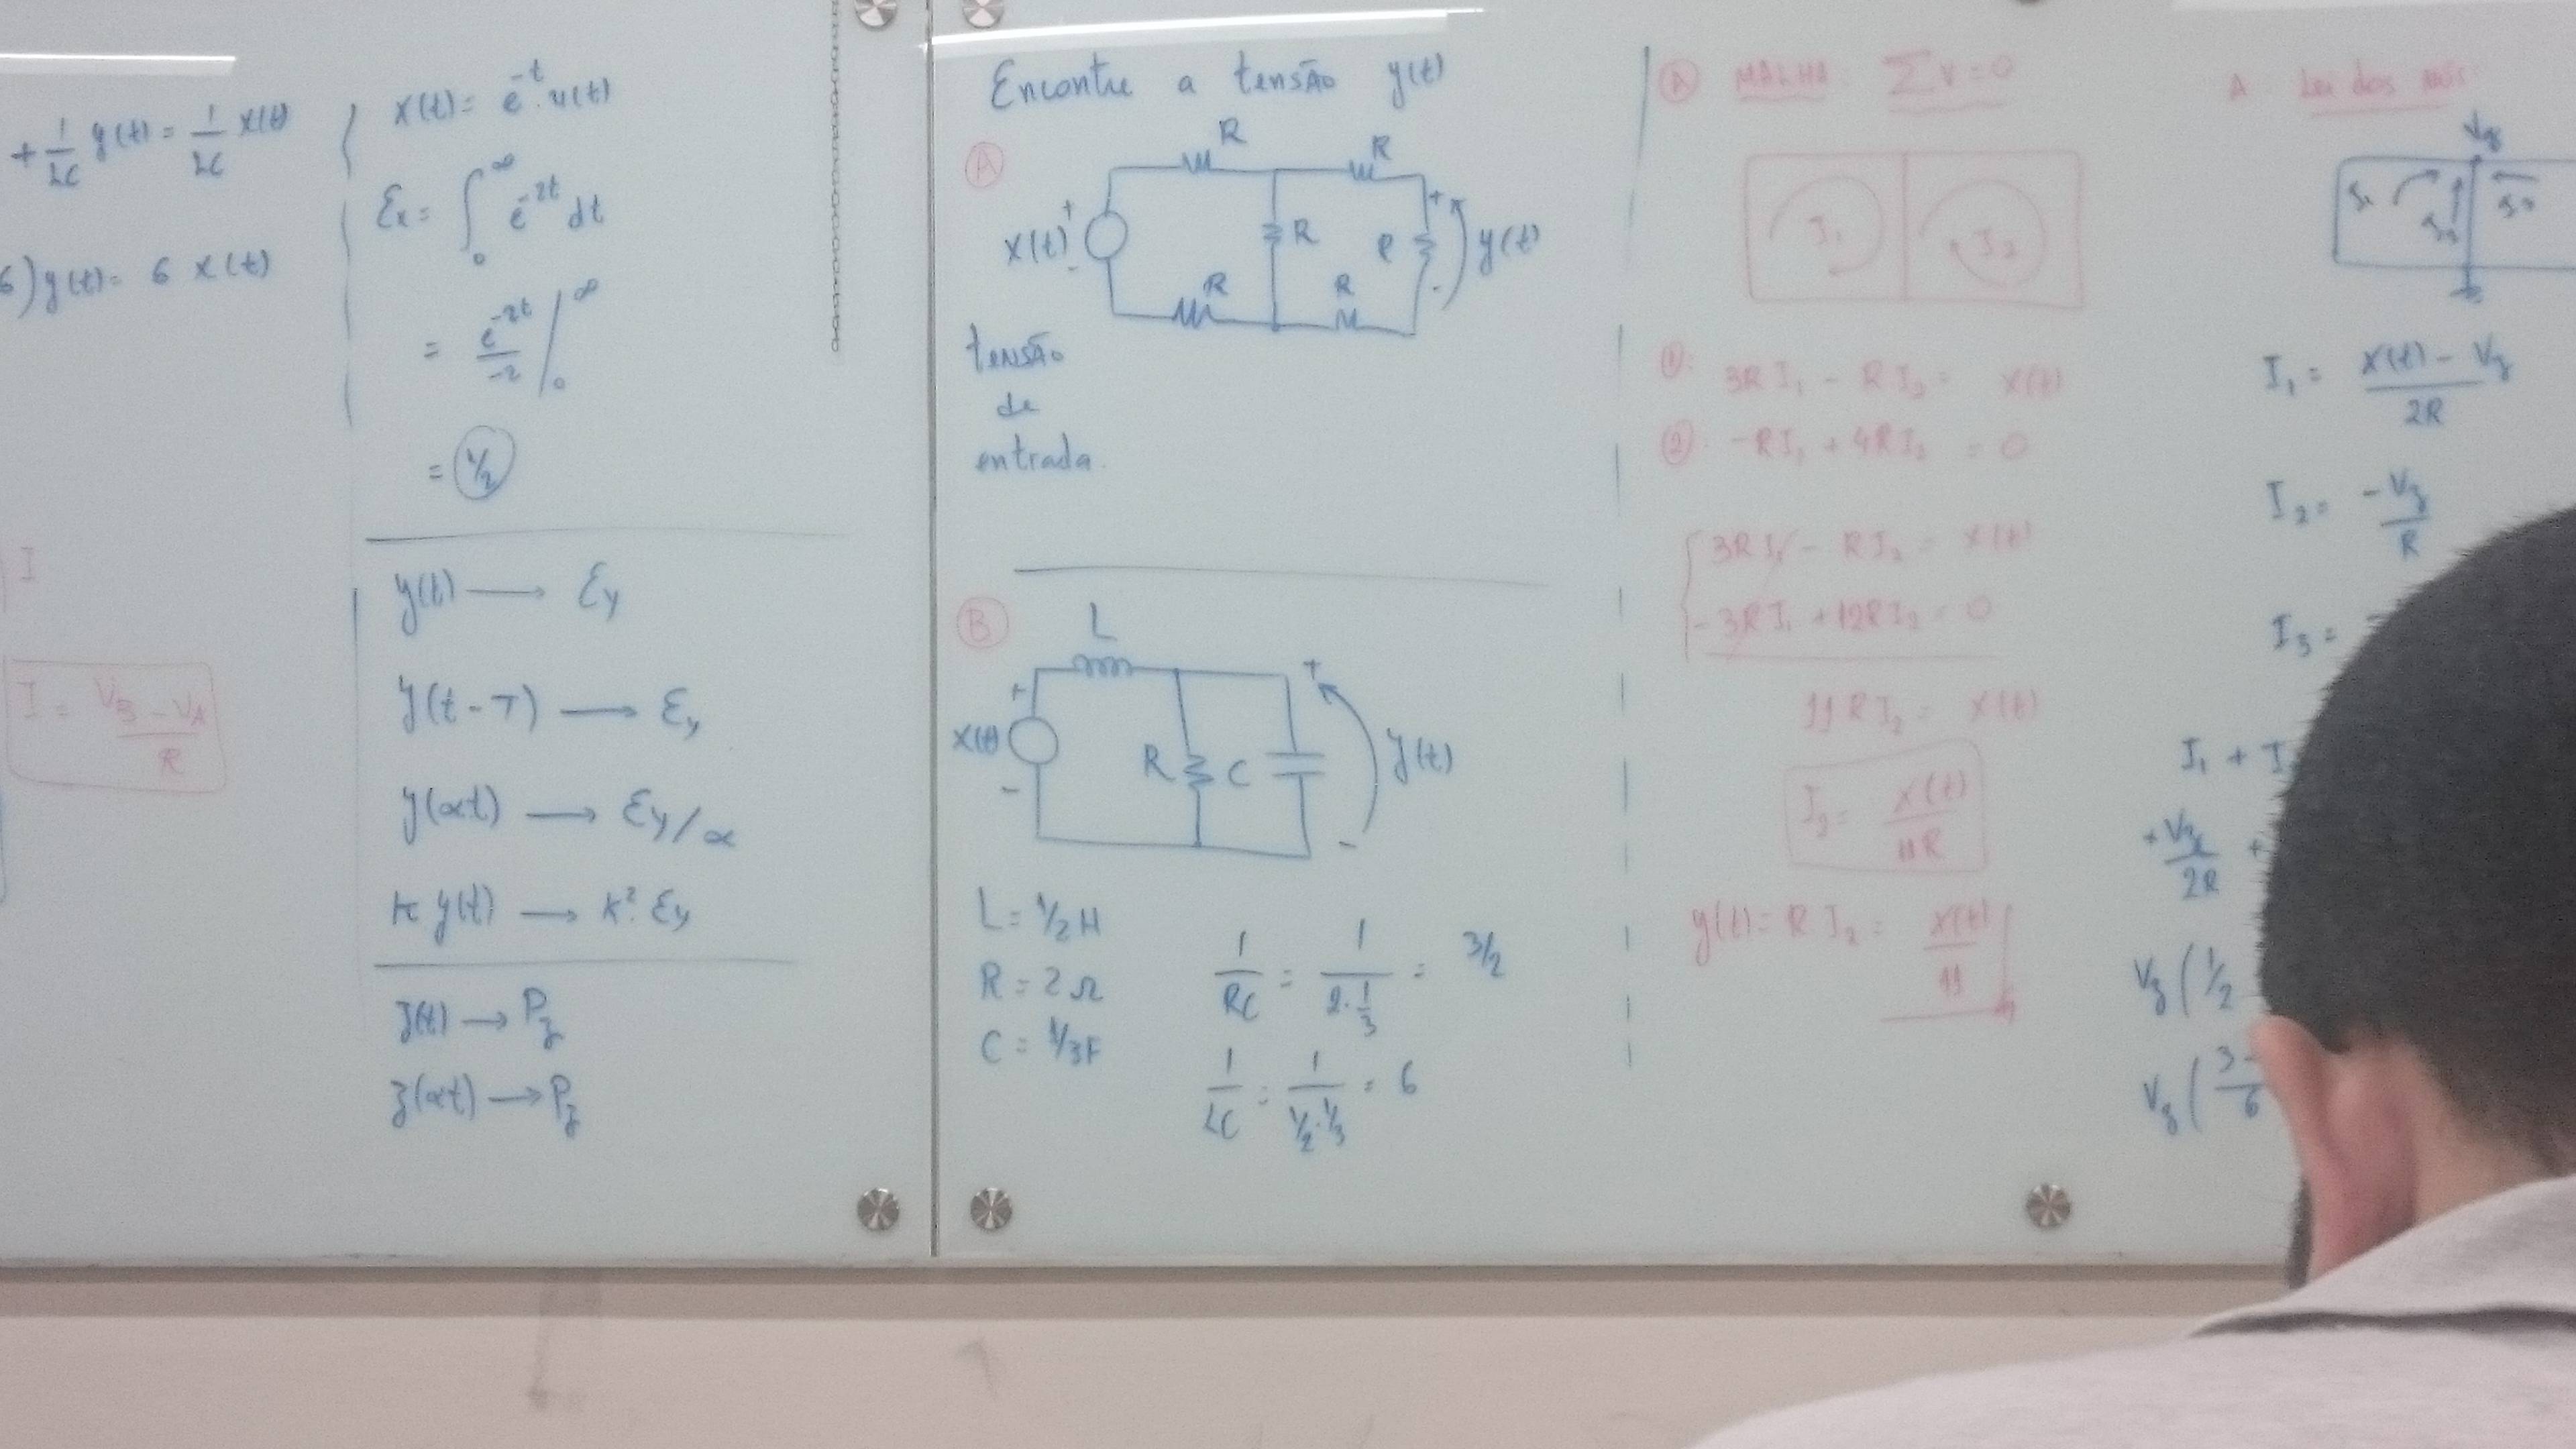 + 1/LC y(t) = 1/LC x(t)
6) y(t) = 6 x(t)
I
I = VB - VA / R
x(t) = e^-t . u(t)
Ex = ∫₀^∞ e^-2t dt
= e^-2t / -2 |₀^∞
= 1/2
y(t) → Ey
y(t - T) → Ey
y(αt) → Ey/α
K y(t) → K². Ey
z(t) → Pz
z(αt) → Pz
Encontre a tensão y(t)
A
R R
x(t) + - R R + - y(t)
R R
tensão
de
entrada.
B
L
x(t) + - R C + - y(t)
L = 1/2 H
R = 2 Ω
C = 1/3 F
1/RC = 1/2.1/3 = 3/2
1/LC = 1/1/2.1/3 = 6
A MALHA Σ V = 0
I1 I2
1: 3R I1 - R I2 = x(t)
2: -R I1 + 4R I2 = 0
3R I1 - R I2 = x(t)
-3R I1 + 12R I2 = 0
11 R I2 = x(t)
I2 = x(t) / 11R
y(t) = R I2 = x(t) / 11
A Lei dos nós
I1 = x(t) - Vz / 2R
I2 = -Vz / R
I3 =
I1 +
+ Vz / 2R +
Vz ( 1/2
Vz ( 3 / 6